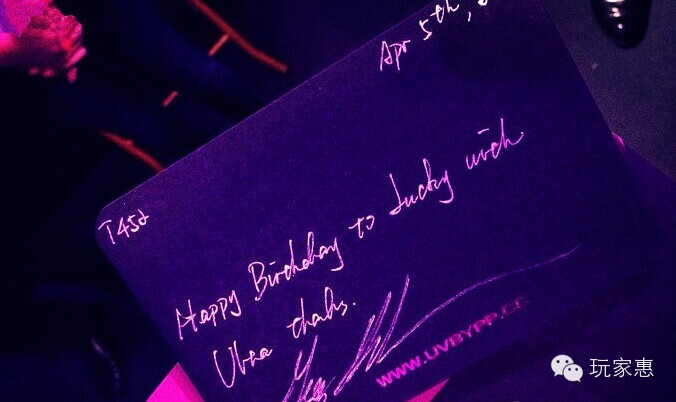 Apr 5th,
T452
Happy Birthday to Lucky with
thanks.
WWW.UVBYPP.CC
玩家惠